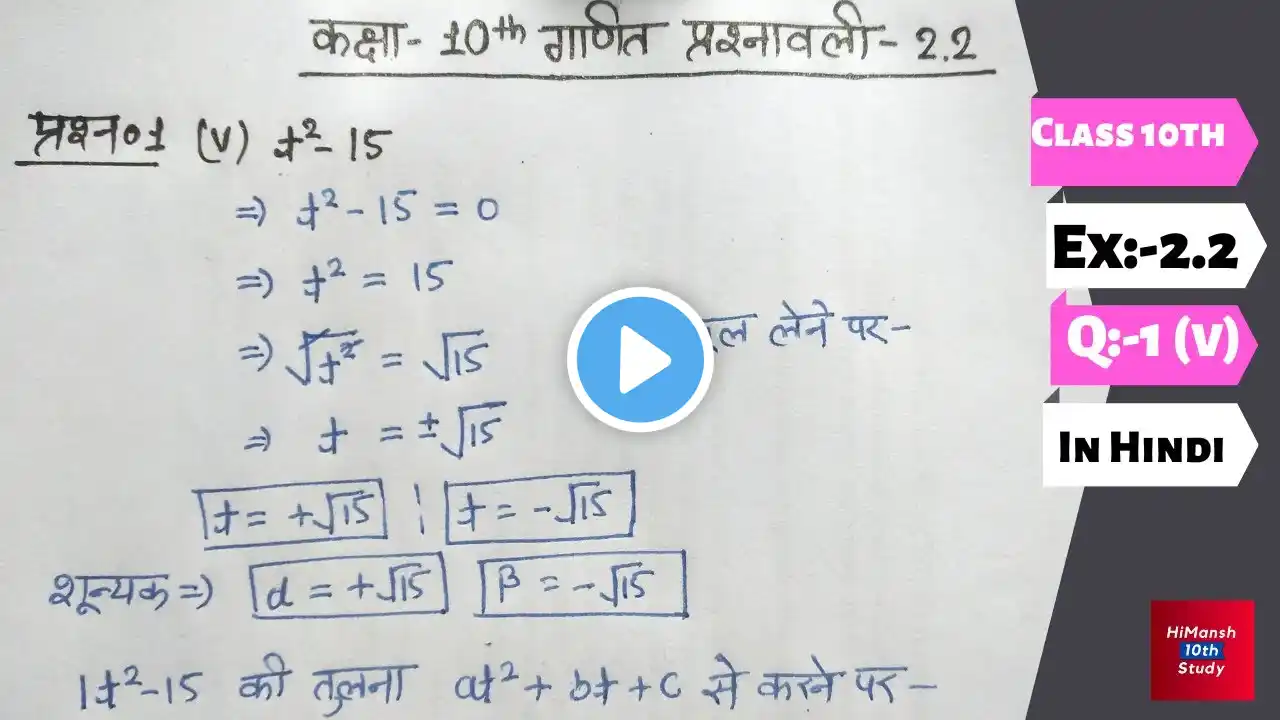 कक्षा- 10th गणित प्रश्नावली- 2.2
प्रश्न०1 (v) t²-15
⇒ t²-15 = 0
⇒ t² = 15
⇒ √t² = √15
लेने पर-
⇒ t = ±√15
t = +√15 ; t = -√15
शून्यक ⇒ α = +√15 β = -√15
1t²-15 की तुलना at² + bt + c से करने पर-
Class 10th
Ex:-2.2
Q:-1 (v)
In Hindi
HiMansh
10th
Study